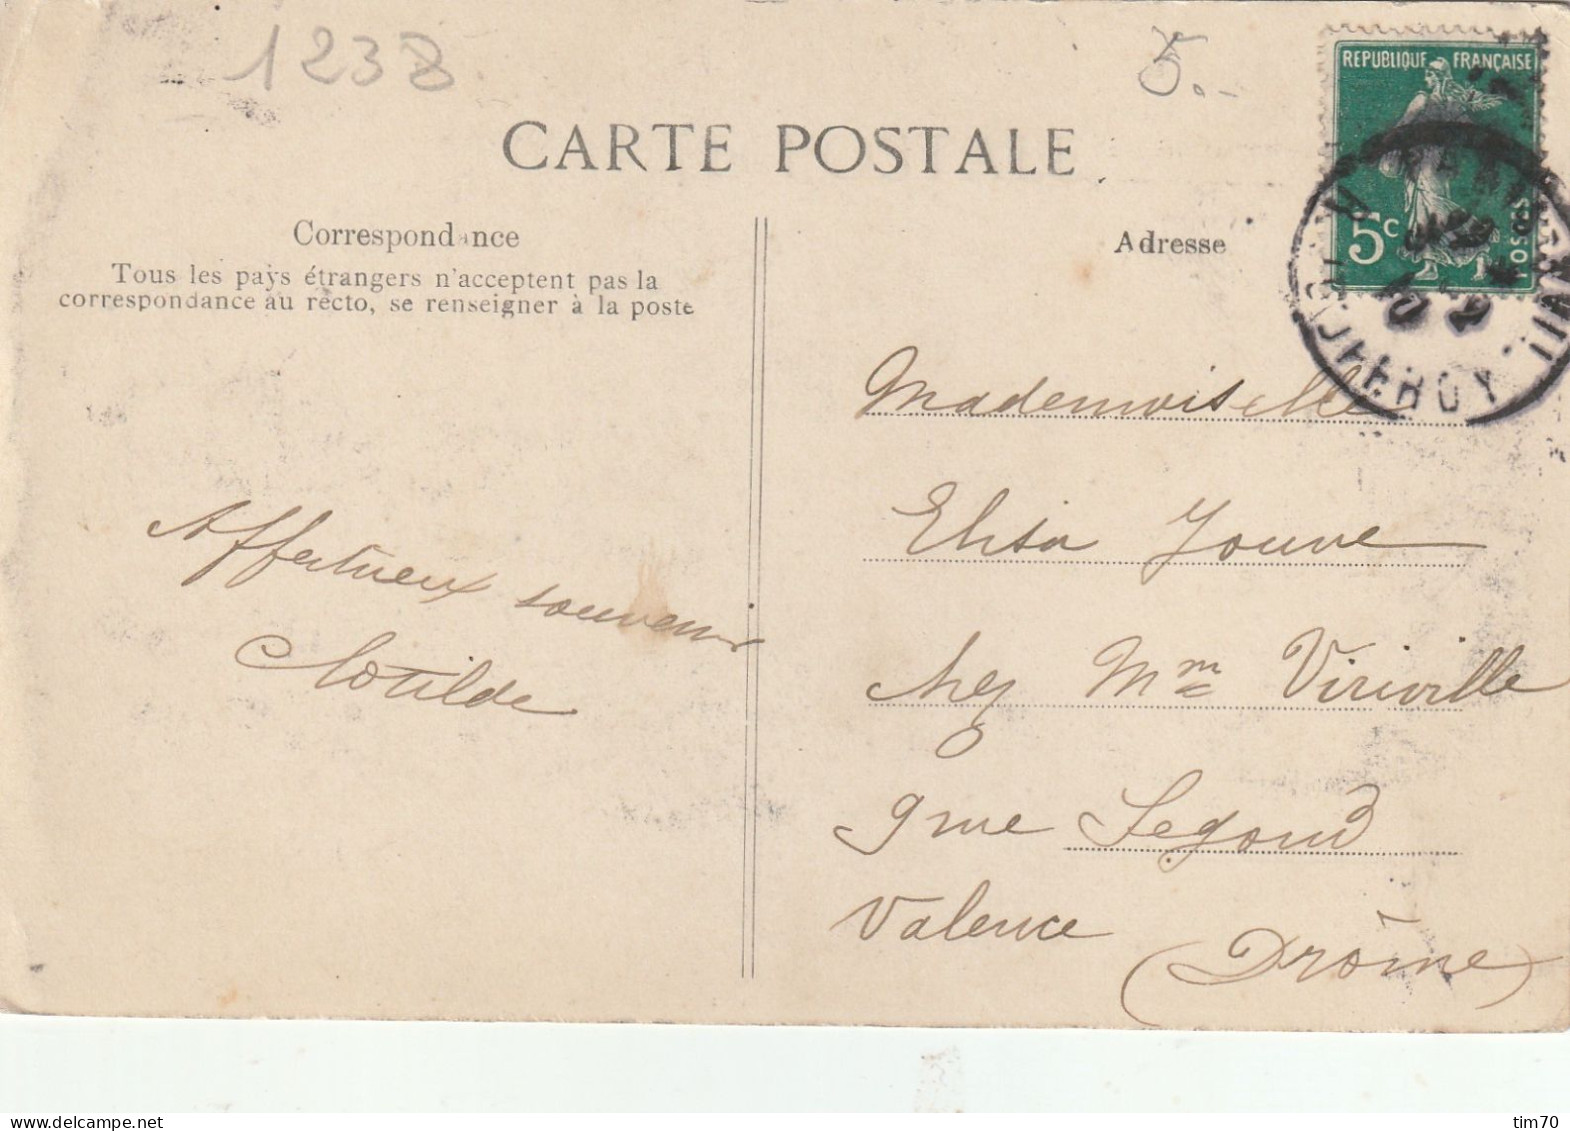 1238
5.-
CARTE POSTALE
REPUBLIQUE FRANÇAISE
5c
POSTES
PARIS
R. JOUFFROY
Correspondance
Tous les pays étrangers n'acceptent pas la
correspondance au recto, se renseigner à la poste
Affectueux souvenir
Clotilde
Adresse
Mademoiselle
Elisa Jouve
chez Mme Viriville
9 rue Segond
Valence (Drôme)
tim70